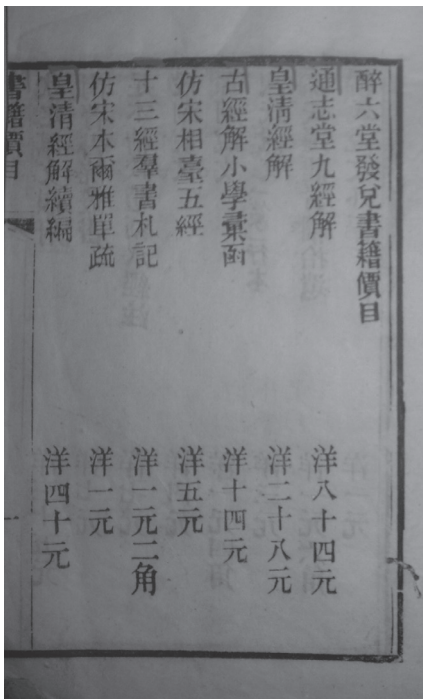 醉六堂發兌書籍價目
通志堂九經解 洋八十四元
皇清經解 洋二十八元
古經解小學彙函 洋十四元
仿宋相臺五經 洋五元
十三經羣書札記 洋一元二角
仿宋本爾雅單疏 洋一元
皇清經解續編 洋四十元
書籍價目 一